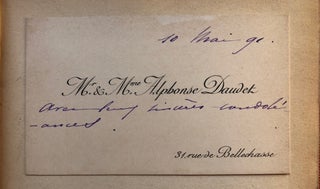 10 Mai 91.
Mr. & Mme Alphonse Daudet
sincères condolé
ances.
31, rue de Bellechasse